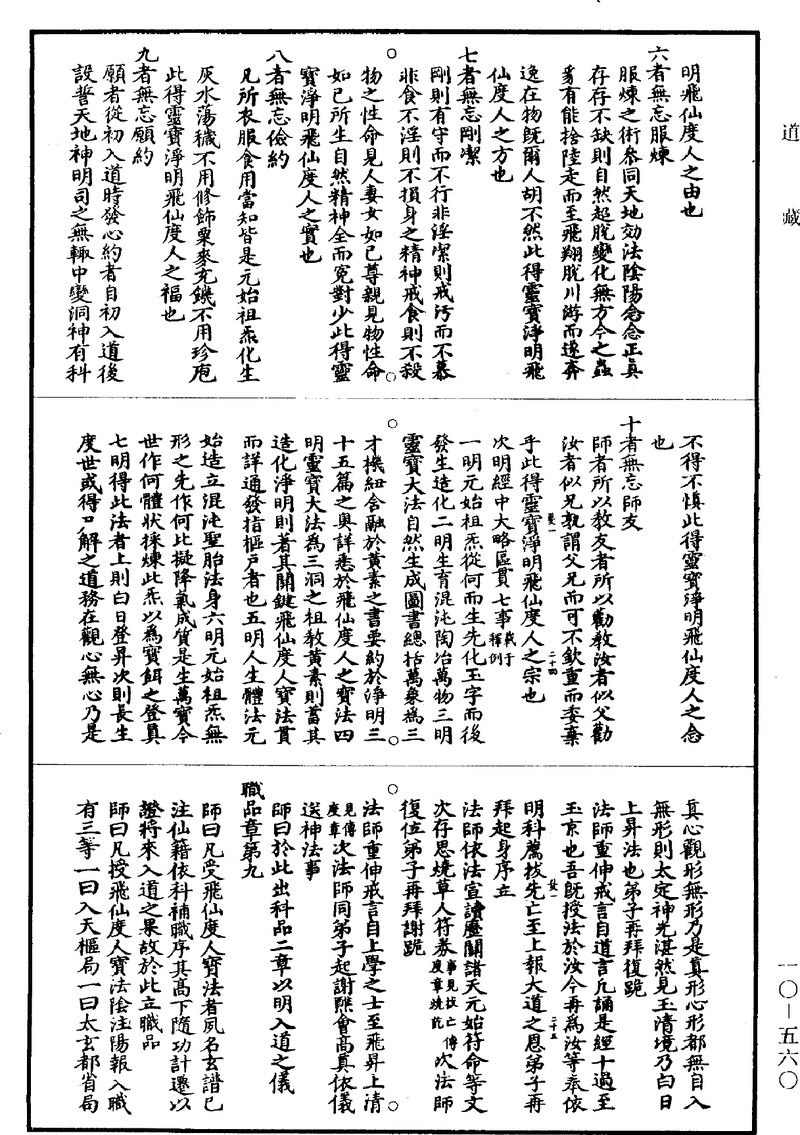 道藏
明飛仙度人之由也
六者無忘服煉
服煉之術參同天地効法陰陽念念正真
存存不缺則自然超脫變化無方今之蟲
豸有能捨陸走而至飛翔脫川游而遂奔
逸在物既爾人胡不然此得靈寶淨明飛
仙度人之方也
七者無忘剛潔
剛則有守而不行非淫潔則戒汚而不慕
非食不淫則不損身之精神戒食則不殺
物之性命見人妻女如己尊親見物性命
如己所生自然精神全而冤對少此得靈
寶淨明飛仙度人之實也
八者無忘儉約
凡所衣服食用當知皆是元始祖炁化生
灰水蕩穢不用修飾粟麥充饑不用珍庖
此得靈寶淨明飛仙度人之福也
九者無忘願約
願者從初入道時發心約者自初入道後
設誓天地神明司之無輒中變洞神有科
不得不慎此得靈寶淨明飛仙度人之念
也
十者無忘師友
師者所以教友者所以勸教汝者似父勸
汝者似兄孰謂父兄而可不欽重而委棄
乎此得靈寶淨明飛仙度人之宗也
次明經中大略區貫七事義于釋例
一明元始祖炁從何而生先化玉字而後
發生造化二明生育混沌陶冶萬物三明
靈寶大法自然生成圖書總括萬象為三
才機紐含融於黃素之書要約於淨明三
十五篇之奧詳悉於飛仙度人之寶法四
明靈寶大法為三洞之祖教黃素則蓄其
造化淨明則著其關鍵飛仙度人寶法貫
而詳通發指樞戶者也五明人生體法元
始造立混沌聖胎法身六明元始祖炁無
形之先作何比擬降氣成質是生萬寶今
世作何體狀採煉此炁以為寶餌之登真
七明得此法者上則白日登昇次則長生
度世或得尸解之道務在觀心無心乃是
真心觀形無形乃是真形心形都無自入
無形則太定神光湛然見玉清境乃白日
上昇法也弟子再拜復跪
法師重伸戒言自道言凡誦是經十過至
玉京也吾既授法於汝今再為汝等奉依
明科薦拔先亡至上報大道之恩弟子再
拜起身序立
法師依法宣讀靈關諸天元始符命等文
次存思燒草人符券事見拔亡度章燒訖傳次法師
復位弟子再拜謝跪
法師重伸戒言自上學之士至飛昇上清
見傳度章次法師同弟子起謝醮會高真依儀
送神法事
師曰於此出科品二章以明入道之儀
職品章第九
師曰凡受飛仙度人寶法者夙名玄譜已
注仙籍依科補職序其高下隨功計遷以
證將來入道之果故於此立職品
師曰凡授飛仙度人寶法陰注陽報入職
有三等一曰入天樞局一曰太玄都省局
一〇—五六〇